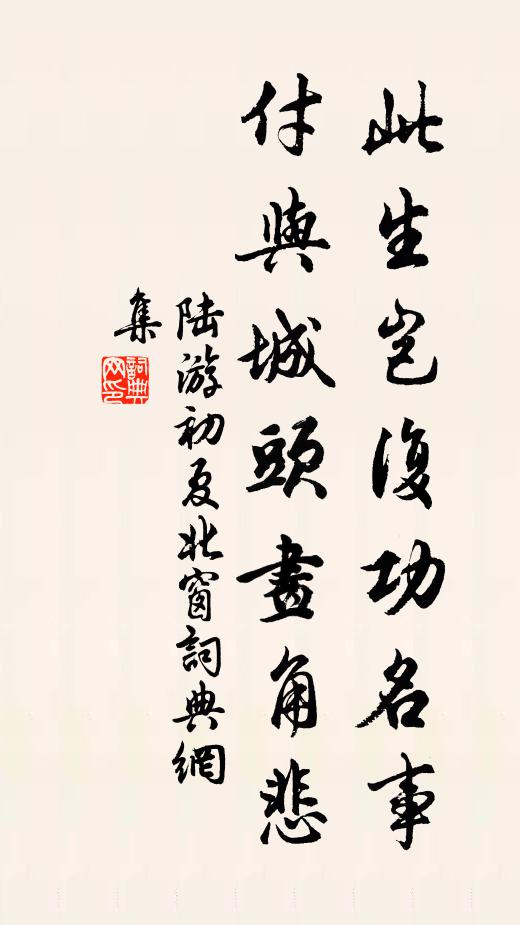 此生豈復功名事
付與城頭畫角悲
陸游初夏北窗詞典網
集
詞典
网印